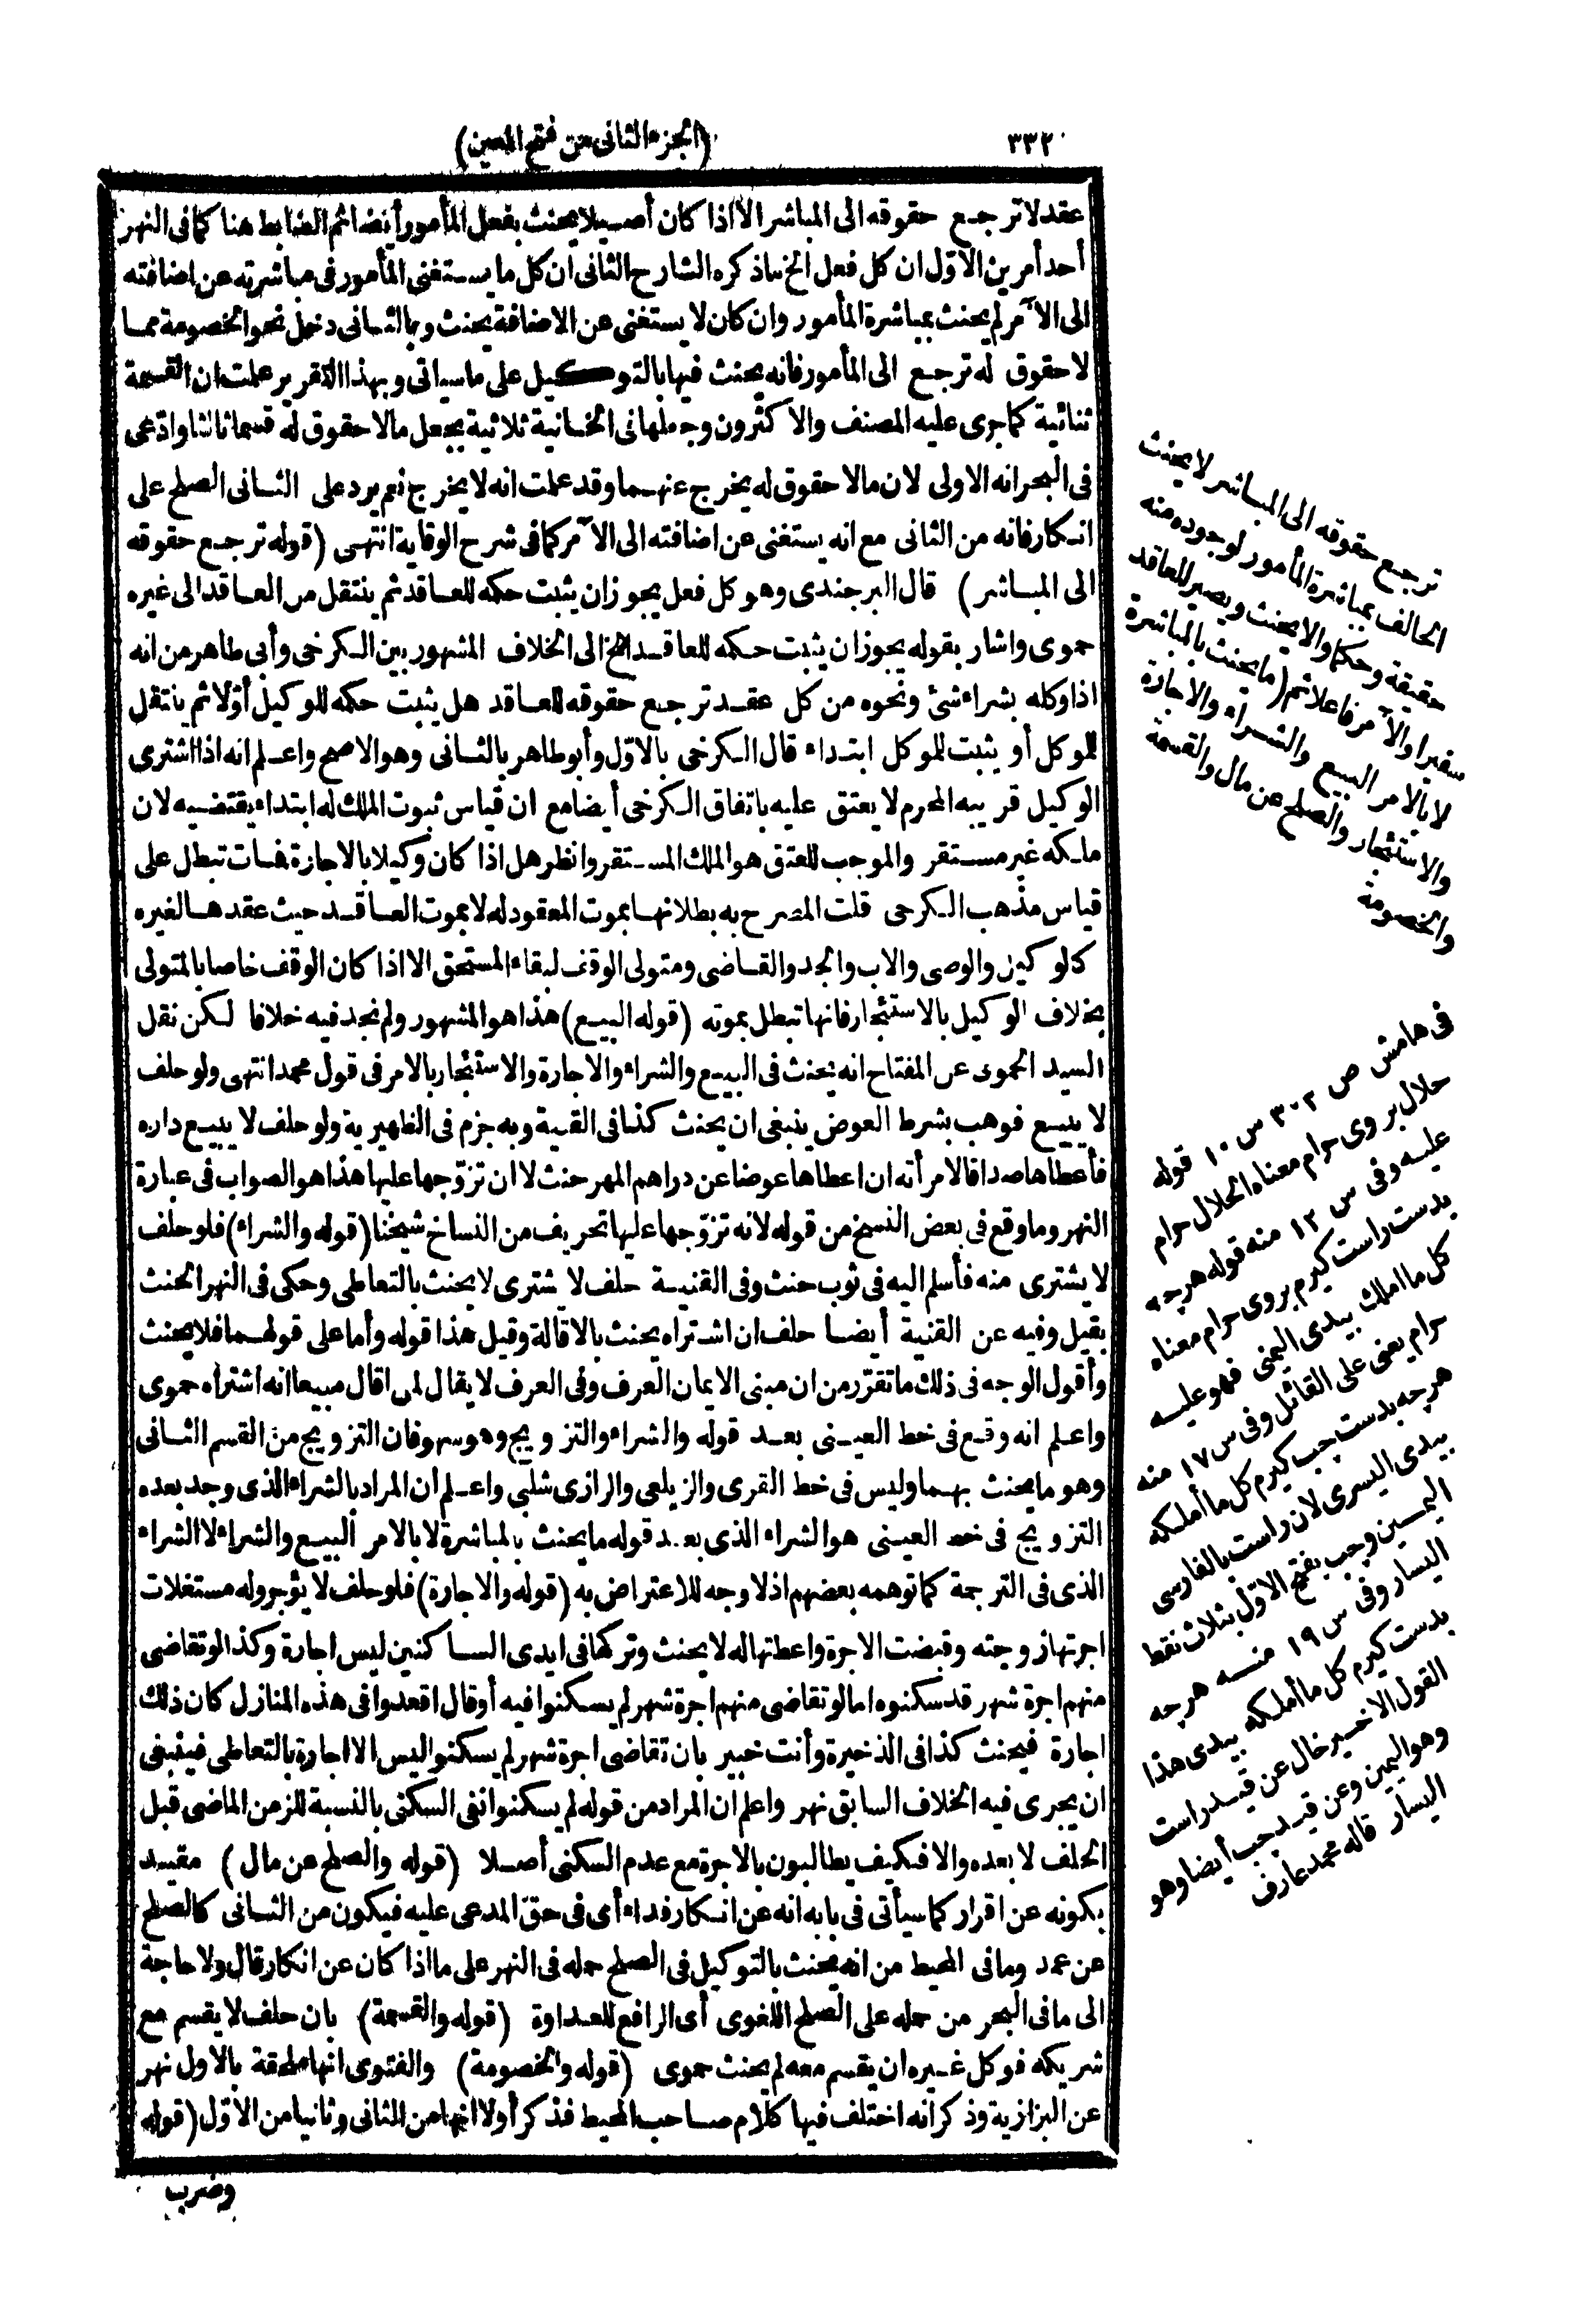 ٣٣٢
(الجزء الثانى من فتح المعين)
عقد لا ترجع حقوقه الى المباشر الا اذا كان أصيلا يحنث بفعل المأمور أيضا ثم الضابط هنا كما فى النهر
أحد أمرين الاوّل ان كل فعل الخ ما ذكره الشارح الثانى ان كل ما يستغنى المأمور فى مباشرته عن اضافته
الى الآمر لم يحنث بمباشرة المأمور وان كان لا يستغنى عن الاضافة يحنث وبالثانى دخل نحو الخصومة مما
لا حقوق له ترجع الى المأمور فانه يحنث فيها بالتوكيل على ما سيأتى وبهذا التقرير علمت ان القسمة
ثنائية كما جرى عليه المصنف والاكثرون وجعلها فى الخانية ثلاثية بجعل مالا حقوق له قسما ثالثا وادّعى
فى البحر انه الاولى لان مالا حقوق له يخرج عنهما وقد علمت انه لا يخرج نعم يرد على الثانى الصلح على
انكار فانه من الثانى مع انه يستغنى عن اضافته الى الآمر كما فى شرح الوقاية انتهى (قوله ترجع حقوقه
الى المباشر) قال البرجندى وهو كل فعل يجوز ان يثبت حكمه للعاقد ثم ينتقل من العاقد الى غيره
حموى واشار بقوله يجوز ان يثبت حكمه للعاقد الخ الى الخلاف المشهور بين الكرخى وأبى طاهر من انه
اذا وكله بشراء شئ ونحوه من كل عقد ترجع حقوقه للعاقد هل يثبت حكمه للوكيل أوّلا ثم ينتقل
للموكل أو يثبت للموكل ابتداء قال الكرخى بالاوّل وأبو طاهر بالثانى وهو الاصح واعلم انه اذا اشترى
الوكيل قريبه المحرم لا يعتق عليه باتفاق الكرخى أيضا مع ان قياس ثبوت الملك له ابتداء يقتضيه لان
ملكه غير مستقر والموجب للعتق هو الملك المستقر وانظر هل اذا كان وكيلا بالاجازة فمات تبطل على
قياس مذهب الكرخى قلت المصرح به بطلانها بموت المعقود له لا بموت العاقد حيث عقدها لغيره
كالوكيل والوصى والاب والجد والقاضى ومتولى الوقف لبقاء المستحق الا اذا كان الوقف خاصا بالمتولى
بخلاف الوكيل بالاستئجار فانها تبطل بموته (قوله البيع) هذا هو المشهور ولم نجد فيه خلافا لكن نقل
السيد الحموى عن المفتاح انه يحنث فى البيع والشراء والاجارة والاستئجار بالامر فى قول محمد انتهى ولو حلف
لا يبيع فوهب بشرط العوض ينبغى ان يحنث كذا فى القنية وبه جزم فى الظهيرية ولو حلف لا يبيع داره
فأعطاها صداقا لامرأته ان اعطاها عوضا عن دراهم المهر حنث لا ان تزوّجها عليها هذا هو الصواب فى عبارة
النهر وما وقع فى بعض النسخ من قوله لانه تزوّجها عليها تحريف من النساخ شيخنا (قوله والشراء) فلو حلف
لا يشترى منه فأسلم اليه فى ثوب حنث وفى القنية حلف لا يشترى لا يحنث بالتعاطى وحكى فى النهر الحنث
بقيل وفيه عن القنية أيضا حلف ان اشتراه يحنث بالاقالة وقيل هذا قوله وأما على قولهما فلا يحنث
وأقول الوجه فى ذلك ما تقرّر من ان مبنى الايمان العرف وفى العرف لا يقال لمن اقال مبيعا انه اشتراه حموى
واعلم انه وقع فى خط العينى بعد قوله والشراء والتزويج وهو سهو فان التزويج من القسم الثانى
وهو ما يحنث بهما وليس فى خط القرى والزيلعى والرازى شلبى واعلم أن المراد بالشراء الذى وجد بعده
التزويج فى خط العينى هو الشراء الذى بعد قوله ما يحنث بالمباشرة لا بالامر البيع والشراء لا الشراء
الذى فى الترجمة كما توهمه بعضهم اذ لا وجه للاعتراض به (قوله والاجارة) فلو حلف لا يؤجر وله مستغلات
اجرتها زوجته وقبضت الاجرة واعطتها له لا يحنث وتركها فى ايدى الساكنين ليس اجارة وكذا لو تقاضى
منهم اجرة شهر قد سكنوه اما لو تقاضى منهم اجرة شهر لم يسكنوا فيه أو قال اقعدوا فى هذه المنازل كان ذلك
اجارة فيحنث كذا فى الذخيرة وأنت خبير بان تقاضى اجرة شهر لم يسكنوا ليس الا اجارة بالتعاطى فينبغى
ان يجرى فيه الخلاف السابق نهر واعلم ان المراد من قوله لم يسكنوا نفى السكنى بالنسبة للزمن الماضى قبل
الحلف لا بعده والا فكيف يطالبون بالاجرة مع عدم السكنى أصلا (قوله والصلح عن مال) مقيد
بكونه عن اقرار كما سيأتى فى بابه انه عن انكار فداء أى فى حق المدعى عليه فيكون من الثانى كالصلح
عن عمد وما فى المحيط من انه يحنث بالتوكيل فى الصلح حمله فى النهر على ما اذا كان عن انكار قال ولا حاجة
الى ما فى البحر من حمله على الصلح اللغوى أى الرافع للعداوة (قوله والقسمة) بان حلف لا يقسم مع
شريكه فوكل غيره ان يقسم معه لم يحنث حموى (قوله والخصومة) والفتوى انها ملحقة بالاول نهر
عن البزازية وذكر انه اختلف فيها كلام صاحب المحيط فذكر أولا انها من الثانى وثانيا من الاوّل (قوله
وضرب
ترجع حقوقه الى المباشر لا يحنث
الحالف بمباشرة المأمور لوجوده منه
حقيقة وحكما والا يحنث ويصير للعاقد
سفيرا والآمر فاعلا ثم (ما يحنث بالمباشرة
لا بالامر البيع والشراء والاجارة
والاستئجار والصلح عن مال والقسمة
والخصومة
فى هامش ص ٣٠٢ س ١٠ قوله
حلال بروى حرام معناه الحلال حرام
عليه وفى س ١٣ منه قوله هرچه
بدست راست كيرم بروى حرام معناه
كل ما املك بيدى اليمنى فهو عليه
حرام يعنى على القائل وفى س ١٧ منه
هرچه بدست چب كيرم كل ما أملكه
بيدى اليسرى لان راست بالفارسى
اليمين وچب بفتح الاوّل بثلاث نقط
اليسار وفى س ١٩ منه هرچه
بدست كيرم كل ما أملكه بيدى هذا
القول الاخير خال عن قيد راست
وهو اليمين وعن قيد چب أيضا وهو
اليسار قاله محمد عارف